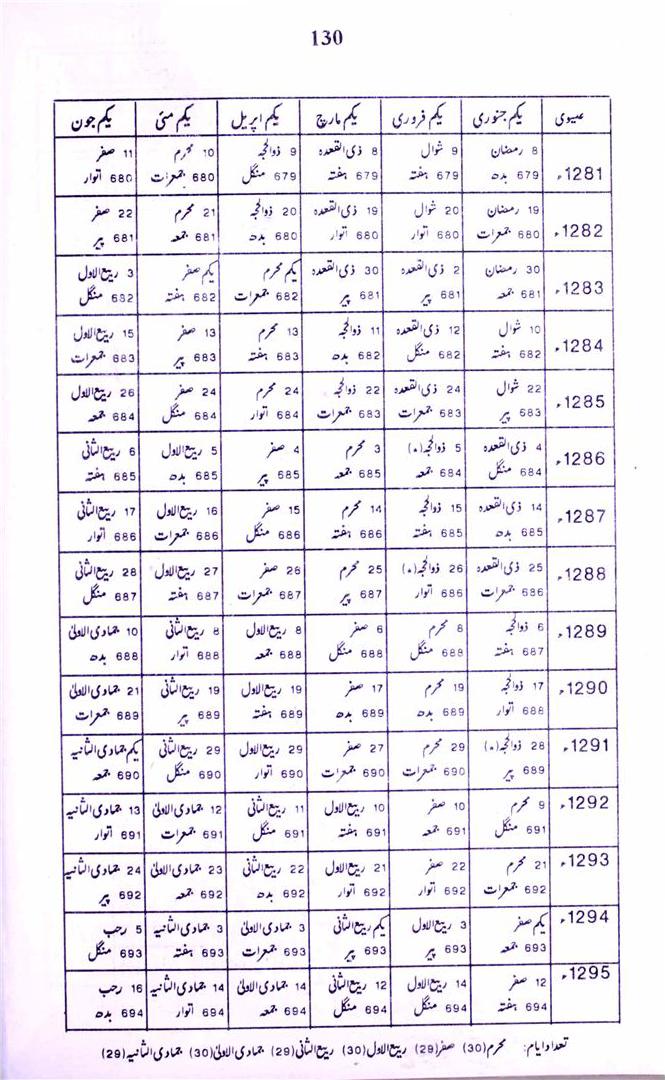 130
عیسوی یکم جنوری یکم فروری یکم مارچ یکم اپریل یکم مئی یکم جون
1281ء 8 رمضان 9 شوال 8 ذی القعدہ 9 ذوالحجہ 10 محرم 11 صفر
679 بدھ 679 ہفتہ 679 ہفتہ 679 منگل 680 جمعرات 680 اتوار
1282ء 19 رمضان 20 شوال 19 ذی القعدہ 20 ذوالحجہ 21 محرم 22 صفر
680 جمعرات 680 اتوار 680 اتوار 680 بدھ 681 جمعہ 681 پیر
1283ء 30 رمضان 2 ذی القعدہ 30 ذی القعدہ یکم محرم یکم صفر 3 ربیع الاول
681 جمعہ 681 پیر 681 پیر 682 جمعرات 682 ہفتہ 682 منگل
1284ء 10 شوال 12 ذی القعدہ 11 ذوالحجہ 13 محرم 13 صفر 15 ربیع الاول
682 ہفتہ 682 منگل 682 بدھ 683 ہفتہ 683 پیر 683 جمعرات
1285ء 22 شوال 24 ذی القعدہ 22 ذوالحجہ 24 محرم 24 صفر 26 ربیع الاول
683 پیر 683 جمعرات 683 جمعرات 684 اتوار 684 منگل 684 جمعہ
1286ء 4 ذی القعدہ 5 ذوالحجہ (٭) 3 محرم 4 صفر 5 ربیع الاول 6 ربیع الثانی
684 منگل 684 جمعہ 685 جمعہ 685 پیر 685 بدھ 685 ہفتہ
1287ء 14 ذی القعدہ 15 ذوالحجہ 14 محرم 15 صفر 16 ربیع الاول 17 ربیع الثانی
685 بدھ 685 ہفتہ 686 ہفتہ 686 منگل 686 جمعرات 686 اتوار
1288ء 25 ذی القعدہ 26 ذوالحجہ (٭) 25 محرم 26 صفر 27 ربیع الاول 28 ربیع الثانی
686 جمعرات 686 اتوار 687 پیر 687 جمعرات 687 ہفتہ 687 منگل
1289ء 6 ذوالحجہ 8 محرم 6 صفر 8 ربیع الاول 8 ربیع الثانی 10 جمادی الاولیٰ
687 ہفتہ 688 منگل 688 منگل 688 جمعہ 688 اتوار 688 بدھ
1290ء 17 ذوالحجہ 19 محرم 17 صفر 19 ربیع الاول 19 ربیع الثانی 21 جمادی الاولیٰ
688 اتوار 689 بدھ 689 بدھ 689 ہفتہ 689 پیر 689 جمعرات
1291ء 28 ذوالحجہ (٭) 29 محرم 27 صفر 29 ربیع الاول 29 ربیع الثانی یکم جمادی الثانیہ
689 پیر 690 جمعرات 690 جمعرات 690 اتوار 690 منگل 690 جمعہ
1292ء 9 محرم 10 صفر 10 ربیع الاول 11 ربیع الثانی 12 جمادی الاولیٰ 13 جمادی الثانیہ
691 منگل 691 جمعہ 691 ہفتہ 691 منگل 691 جمعرات 691 اتوار
1293ء 21 محرم 22 صفر 21 ربیع الاول 22 ربیع الثانی 23 جمادی الاولیٰ 24 جمادی الثانیہ
692 جمعرات 692 اتوار 692 اتوار 692 بدھ 692 جمعہ 692 پیر
1294ء یکم صفر 3 ربیع الاول یکم ربیع الثانی 3 جمادی الاولیٰ 3 جمادی الثانیہ 5 رجب
693 جمعہ 693 پیر 693 پیر 693 جمعرات 693 ہفتہ 693 منگل
1295ء 12 صفر 14 ربیع الاول 12 ربیع الثانی 14 جمادی الاولیٰ 14 جمادی الثانیہ 16 رجب
694 ہفتہ 694 منگل 694 منگل 694 جمعہ 694 اتوار 694 بدھ
تعداد ایام: محرم (30) صفر (29) ربیع الاول (30) ربیع الثانی (29) جمادی الاولیٰ (30) جمادی الثانیہ (29)